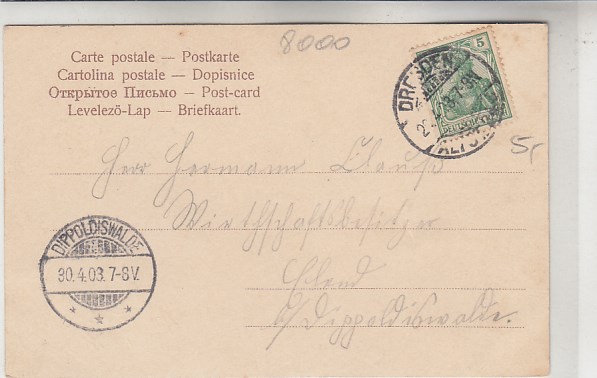 8000
Carte postale — Postkarte
Cartolina postale — Dopisnice
Открытое Письмо — Post-card
Levelező-Lap — Briefkaart.
5
DRESDEN
ALTST.
DEUTSCHES
5,-
Herr Hermann Clauß
Wirthschaftsbesitzer
Elend
b/Dippoldiswalde.
DIPPOLDISWALDE
30.4.03. 7-8V.
* * *